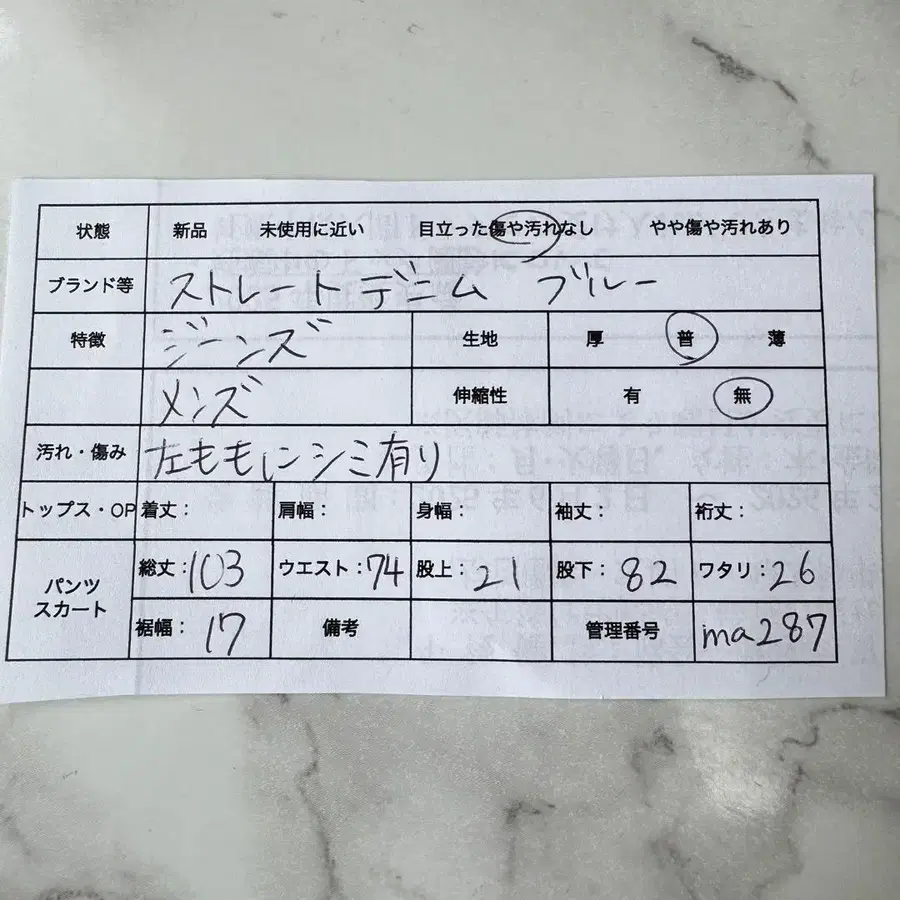 状態 新品 未使用に近い 目立った傷や汚れなし やや傷や汚れあり
ブランド等 ストレートデニム ブルー
特徴 ジーンズ 生地 厚 普 薄
メンズ 伸縮性 有 無
汚れ・傷み 左ももにシミ有り
トップス・OP 着丈: 肩幅: 身幅: 袖丈: 裄丈:
パンツ スカート 総丈:103 ウエスト:74 股上:21 股下:82 ワタリ:26
裾幅: 17 備考 管理番号 ma287